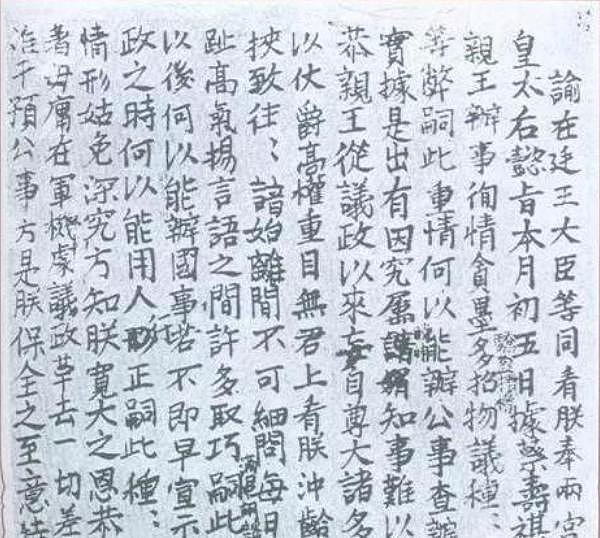 諭在廷王大臣等同看朕奉兩宮
皇太后懿旨本月初五日據蔡壽祺
親王辦事徇情貪墨多招物議種:
等弊嗣此重情何以能辦公事查辦
實據是出有因究屬知事難以
恭親王從議政以來妄自尊大諸多
以仗爵高權重目無君上看朕沖齡
挾致往:諳始離間不可細問每日
趾高氣揚言語之間許多取巧嗣此
以後何以能辦國事若不即早宣示
政之時何以能用人行正嗣此種:
情形姑免深究方知朕寬大之恩恭
著毋庸在軍機處議政革去一切差
准干預公事方是朕保全之至意特